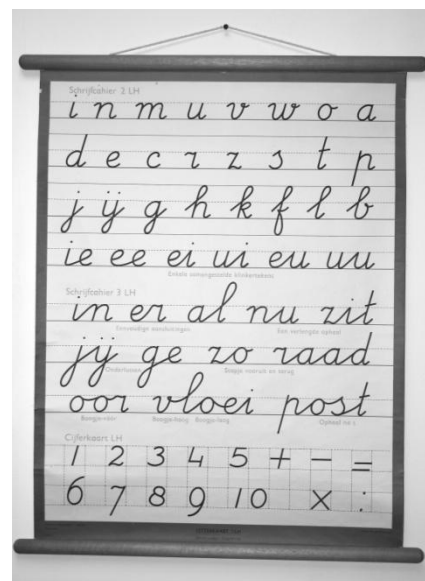 Schrijfcahier 2 LH
i n m u v w o a
d e c r z s t p
j ij g h k f l b
ie ee ei ui eu uu
Enkele samengestelde klinkertekens
Schrijfcahier 3 LH
in er al nu zit
Eenvoudige aansluitingen Een verlengde ophaal
jij ge zo raad
Onderlussen Boogje vooruit en terug
oor vloei post
Boogje-vóór Boogje-hoog Boogje-laag Ophaal na t
Cijferkaart LH
1 2 3 4 5 + - =
6 7 8 9 10 x :